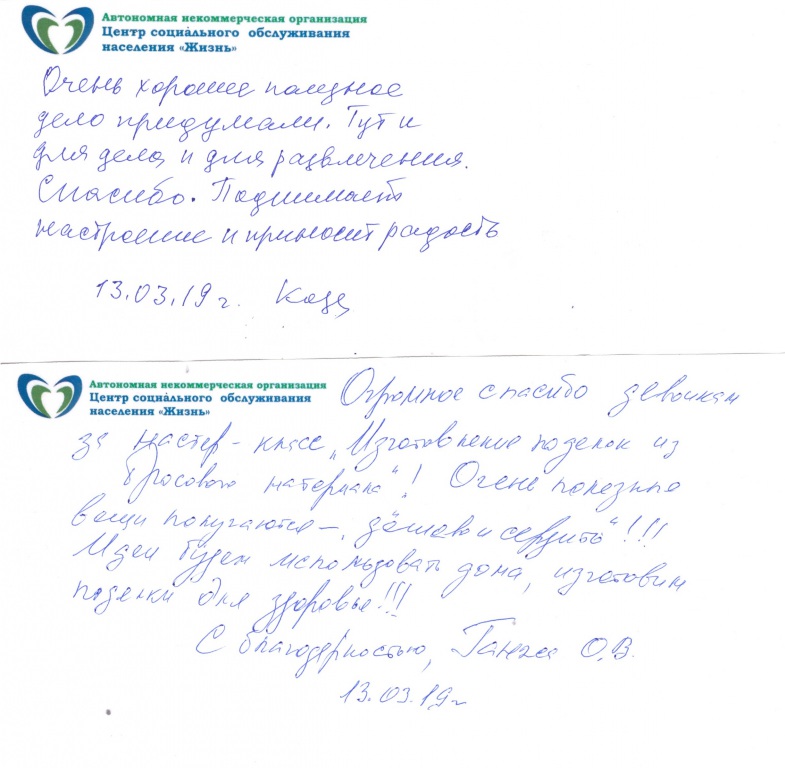 Автономная некоммерческая организация
Центр социального обслуживания
населения «Жизнь»
Очень хорошее полезное
дело придумали. Тут и
для дела и для развлечения.
Спасибо. Поднимает
настроение и приносит радость
13.03.19 г.
Автономная некоммерческая организация
Центр социального обслуживания
населения «Жизнь»
Огромное спасибо девочкам
за мастер-класс „Изготовление поделок из
бросового материала“! Очень полезные
вещи получаются –„дёшево и сердито“!!!
Идеи будем использовать дома, изготовим
поделки для здоровье!!!
С благодарностью, О.В.
13.03.19 г